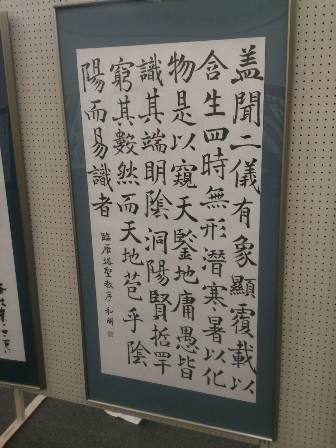 盖聞二儀有象顯覆載以
含生四時無形潛寒暑以化
物是以窺天鑒地庸愚皆
識其端明陰洞陽賢哲罕
窮其數然而天地苞乎陰
陽而易識者
臨雁塔聖教序